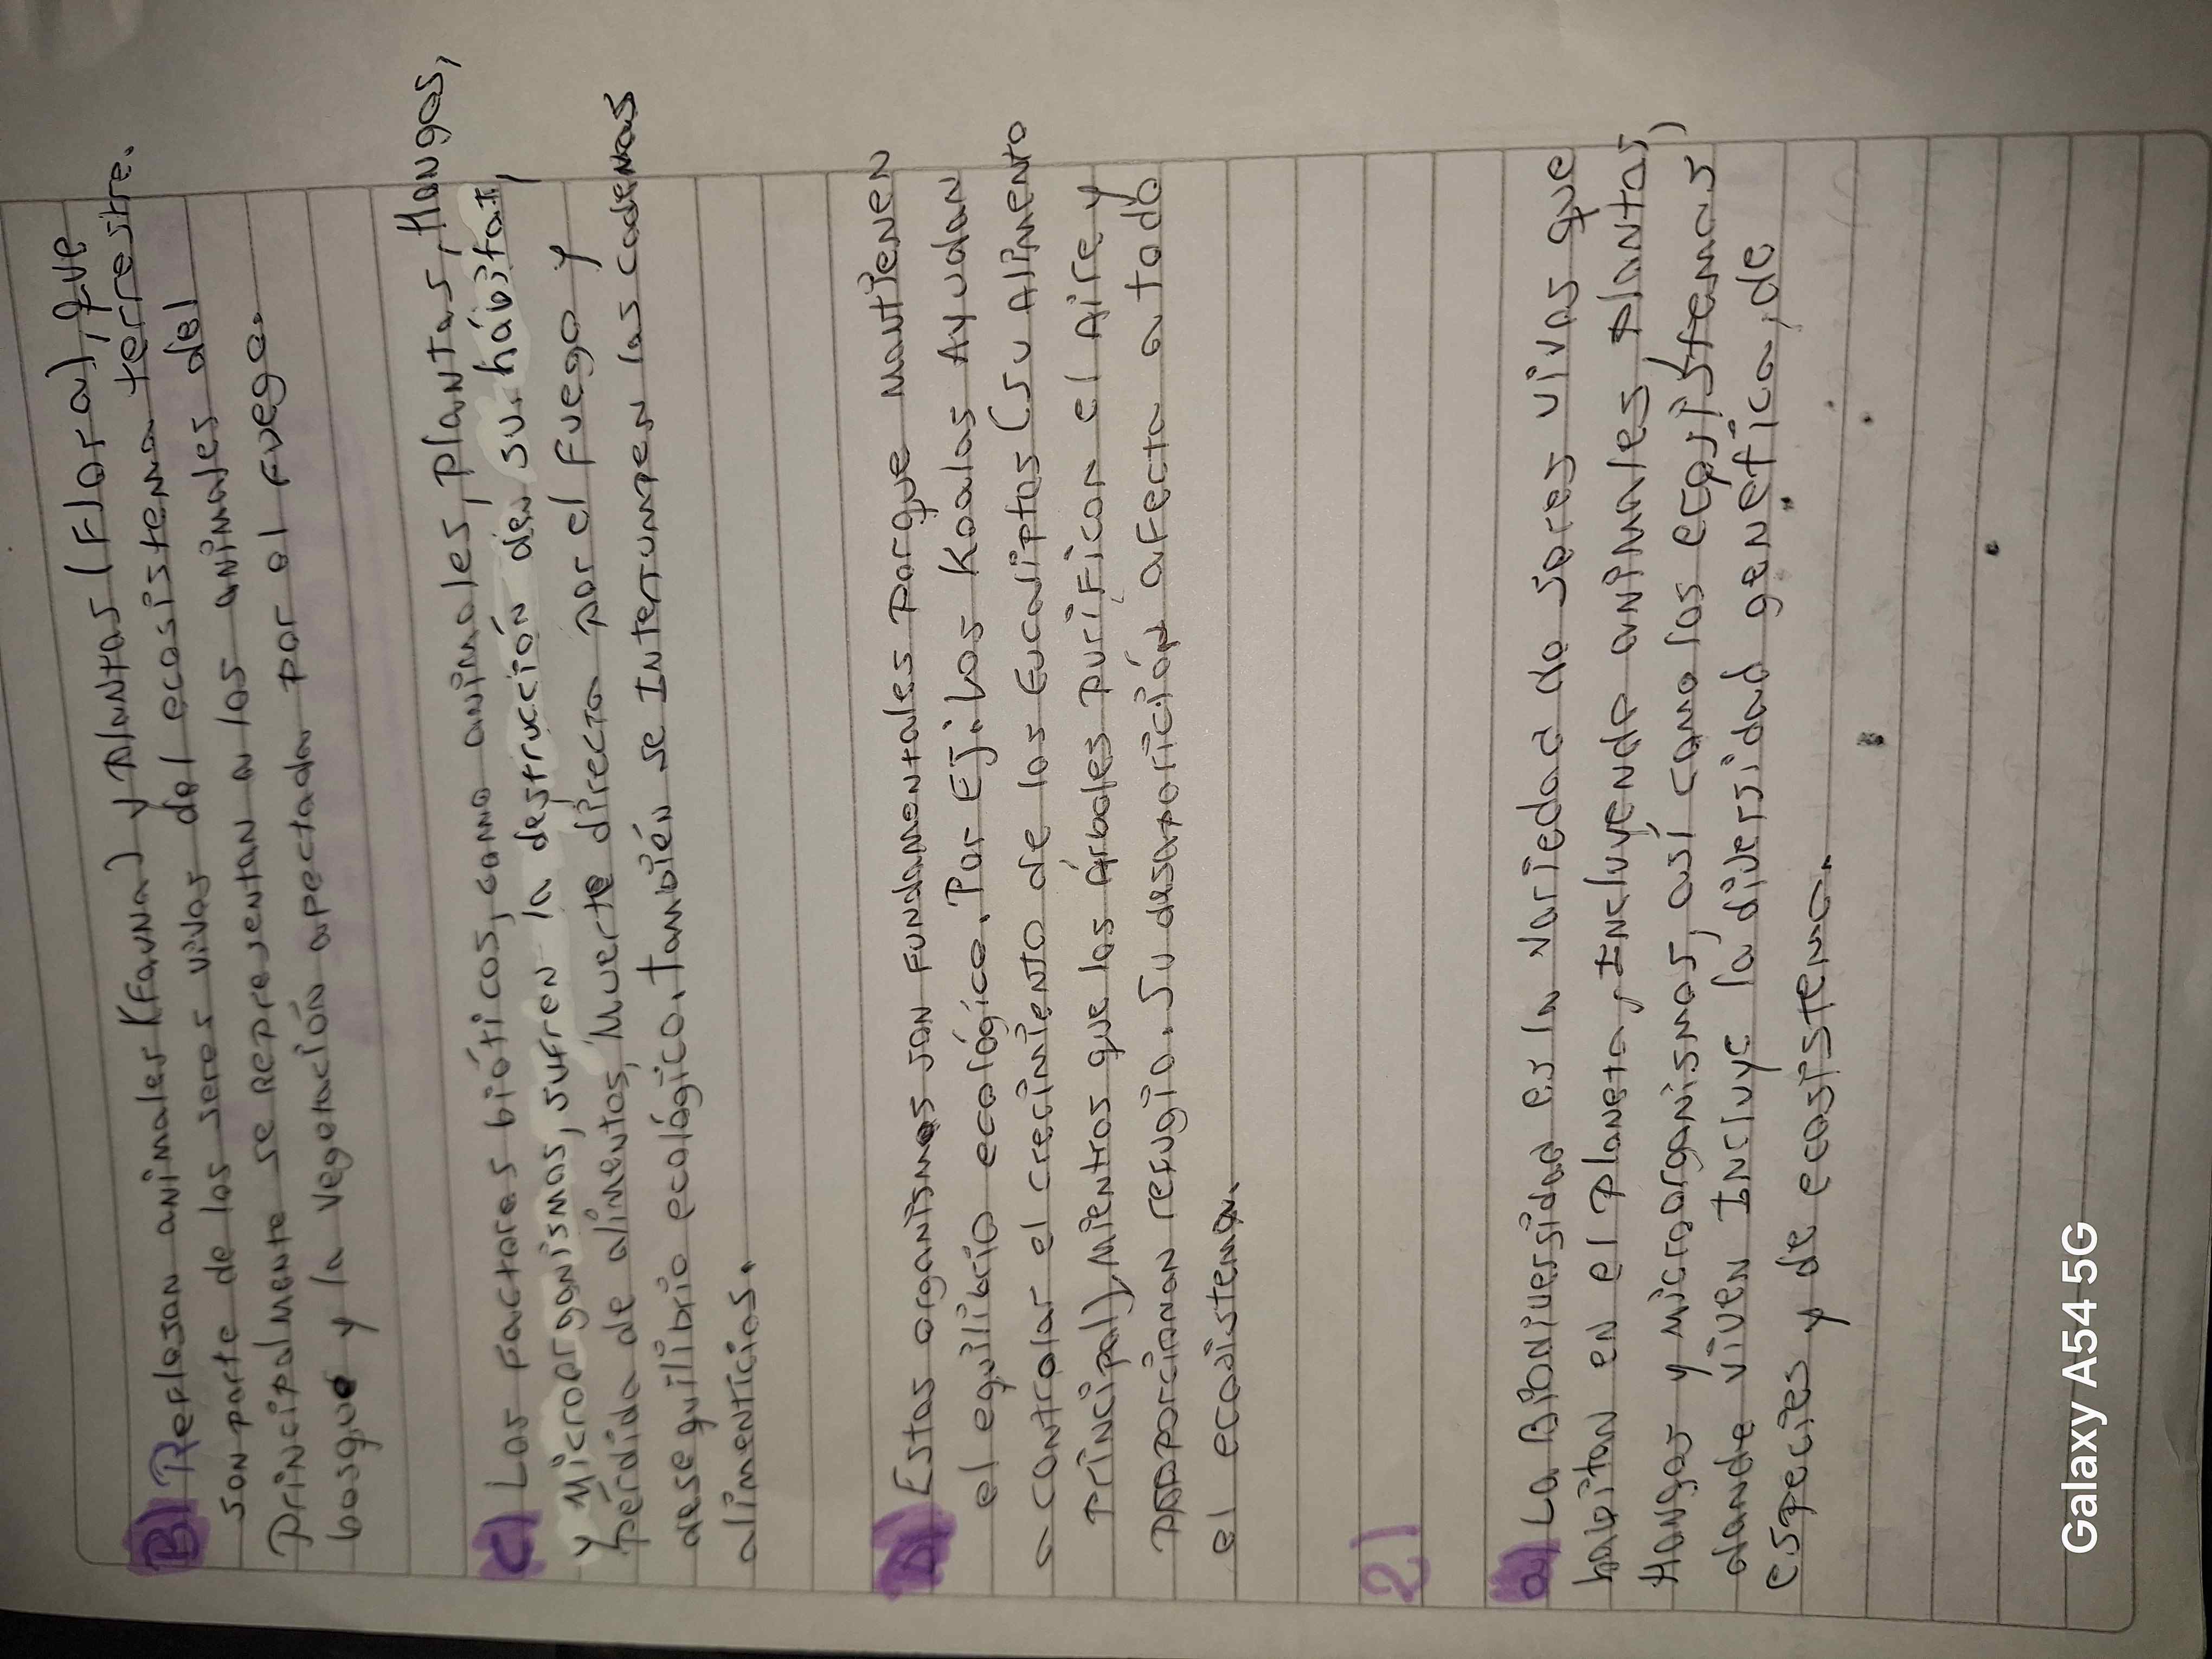 B) Reflejan animales (Fauna) y plantas (Flora), que
son parte de los seres vivos del ecosistema terrestre.
Principalmente se representan a los animales del
bosque y la vegetación apectada por el fuego.
C) Los factores bióticos, como animales, plantas, Hongos,
y Microorganismos, sufren la destrucción den su hábitat,
pérdida de alimentos, Muerte directa por el fuego y
desequilibrio ecológico. También se Interrumpen las cadenas
alimenticias.
D) Estos organismos son fundamentales porque mantienen
el equilibrio ecológico. Por Ej: Los Koalas Ayudan
a controlar el crecimiento de los Eucaliptos (su Alimento
Principal), Mientras que los Árboles purifican el Aire y
proporcionan refugio. Su desaparición afecta a todo
el ecosistema.
2)
a) La Biodiversidad es la variedad de seres vivos que
habitan en el planeta, Incluyendo animales, plantas,
Hongos y Microorganismos, así como los ecosistemas
donde viven Incluye la diversidad genetica, de
especies y de ecosistema.
Galaxy A54 5G